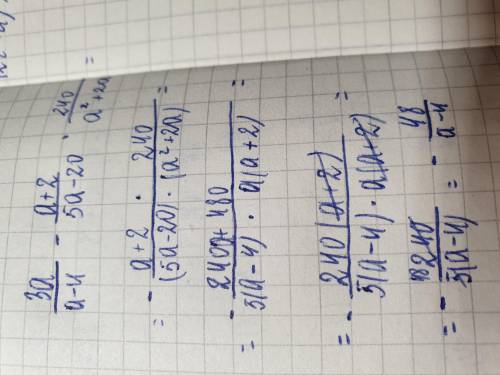 3a/(a-4) - (a+2)/(5a-20) · 240/(a²+2a) =
= - (a+2 · 240)/((5a-20) · (a²+2a)) =
= - (240a+480)/(5(a-4) · a(a+2)) =
= - (240(a+2))/(5(a-4) · a(a+2)) =
= - 48 240/(5(a-4)) = - 48/(a-4)